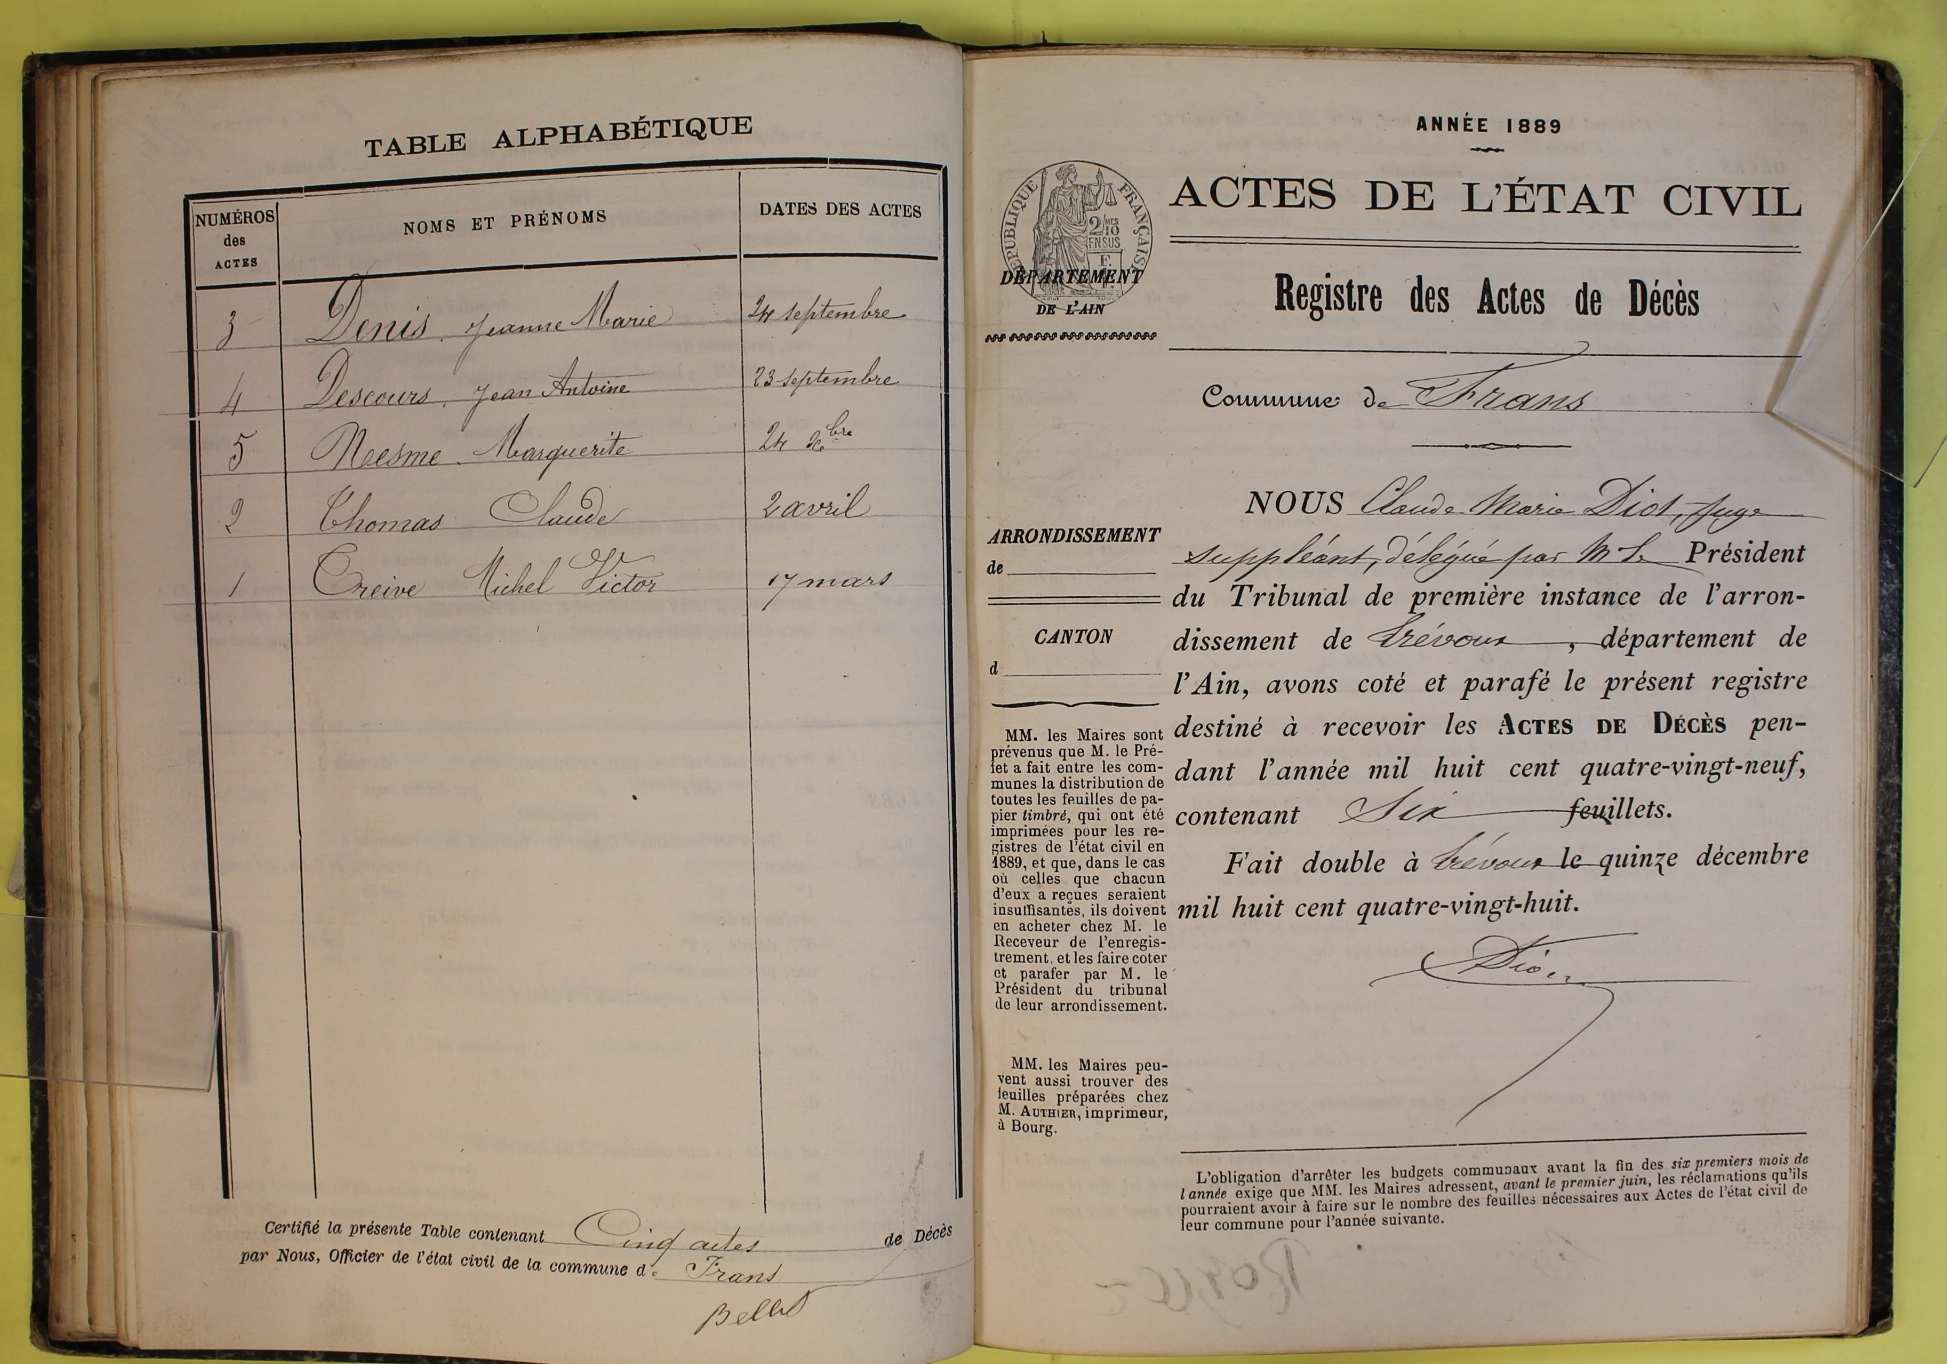 TABLE ALPHABÉTIQUE
NUMÉROS des ACTES
NOMS ET PRÉNOMS
DATES DES ACTES
3 Denis Jeanne Marie 24 septembre
4 Descours Jean Antoine 23 septembre
5 Nesme Marguerite 24 Xbre
2 Thomas Claude 2 avril
1 Creive Michel Victor 17 mars
Certifié la présente Table contenant Cinq actes de Décès
par Nous, Officier de l'état civil de la commune de Frans
ANNÉE 1889
ACTES DE L'ÉTAT CIVIL
RÉPUBLIQUE FRANÇAISE
2/10
EN SUS
DÉPARTEMENT
DE L'AIN
Registre des Actes de Décès
Commune de Frans
ARRONDISSEMENT
de
CANTON
d
MM. les Maires sont
prévenus que M. le Pré-
fet a fait entre les com-
munes la distribution de
toutes les feuilles de pa-
pier timbré, qui ont été
imprimées pour les re-
gistres de l'état civil en
1889, et que, dans le cas
où celles que chacun
d'eux a reçues seraient
insuffisantes, ils doivent
en acheter chez M. le
Receveur de l'enregis-
trement, et les faire coter
et parafer par M. le
Président du tribunal
de leur arrondissement.
MM. les Maires peu-
vent aussi trouver des
feuilles préparées chez
M. AUTHIER, imprimeur,
à Bourg.
NOUS Claude Marie Diot, Juge
suppléant, délégué par M le Président
du Tribunal de première instance de l'arron-
dissement de Trévoux, département de
l'Ain, avons coté et parafé le présent registre
destiné à recevoir les ACTES DE DÉCÈS pen-
dant l'année mil huit cent quatre-vingt-neuf,
contenant Six feuillets.
Fait double à Trévoux le quinze décembre
mil huit cent quatre-vingt-huit.
L'obligation d'arrêter les budgets communaux avant la fin des six premiers mois de
l'année exige que MM. les Maires adressent, avant le premier juin, les réclamations qu'ils
pourraient avoir à faire sur le nombre des feuilles nécessaires aux Actes de l'état civil de
leur commune pour l'année suivante.